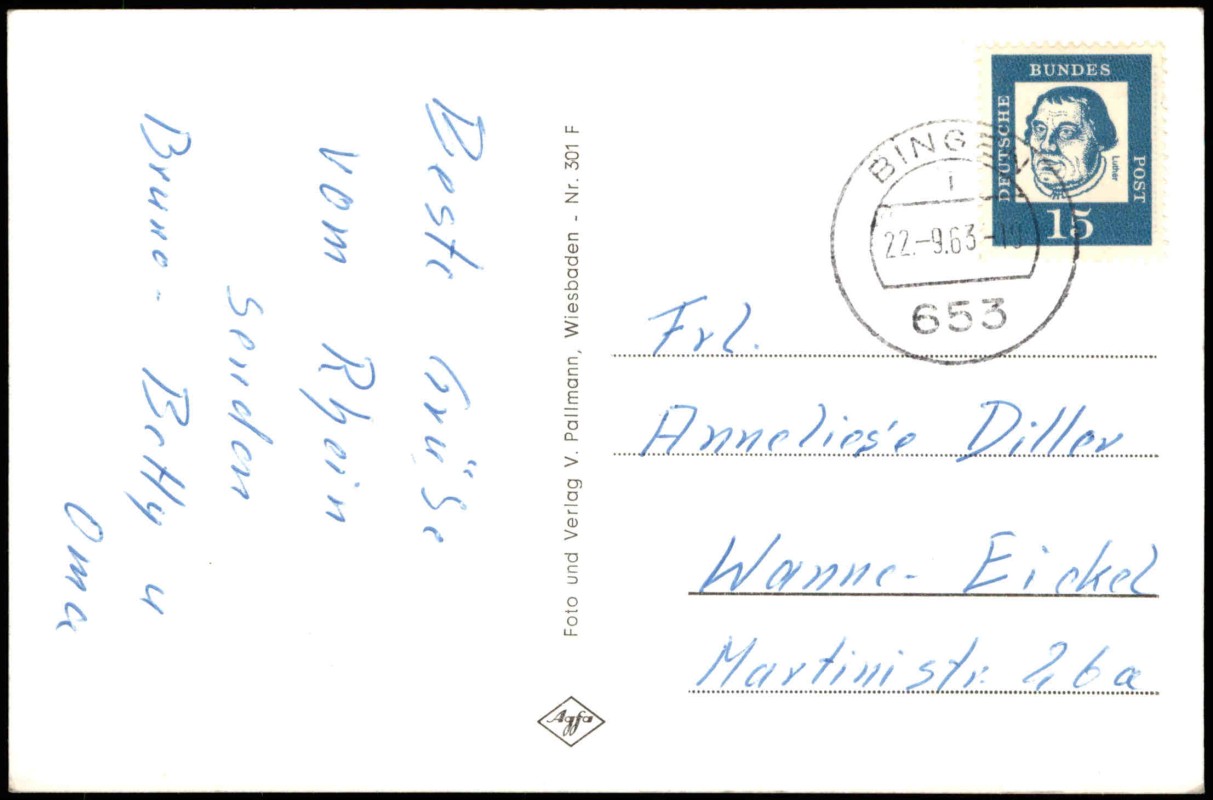 Beste Grüße
vom Rhein
senden
Bruno - Betty u
Oma
Foto und Verlag V. Pallmann, Wiesbaden - Nr. 301 F
Agfa
DEUTSCHE
BUNDES
POST
Luther
15
BING
22.-9.63
653
Frl.
Anneliese Diller
Wanne-Eickel
Martinistr. 26a